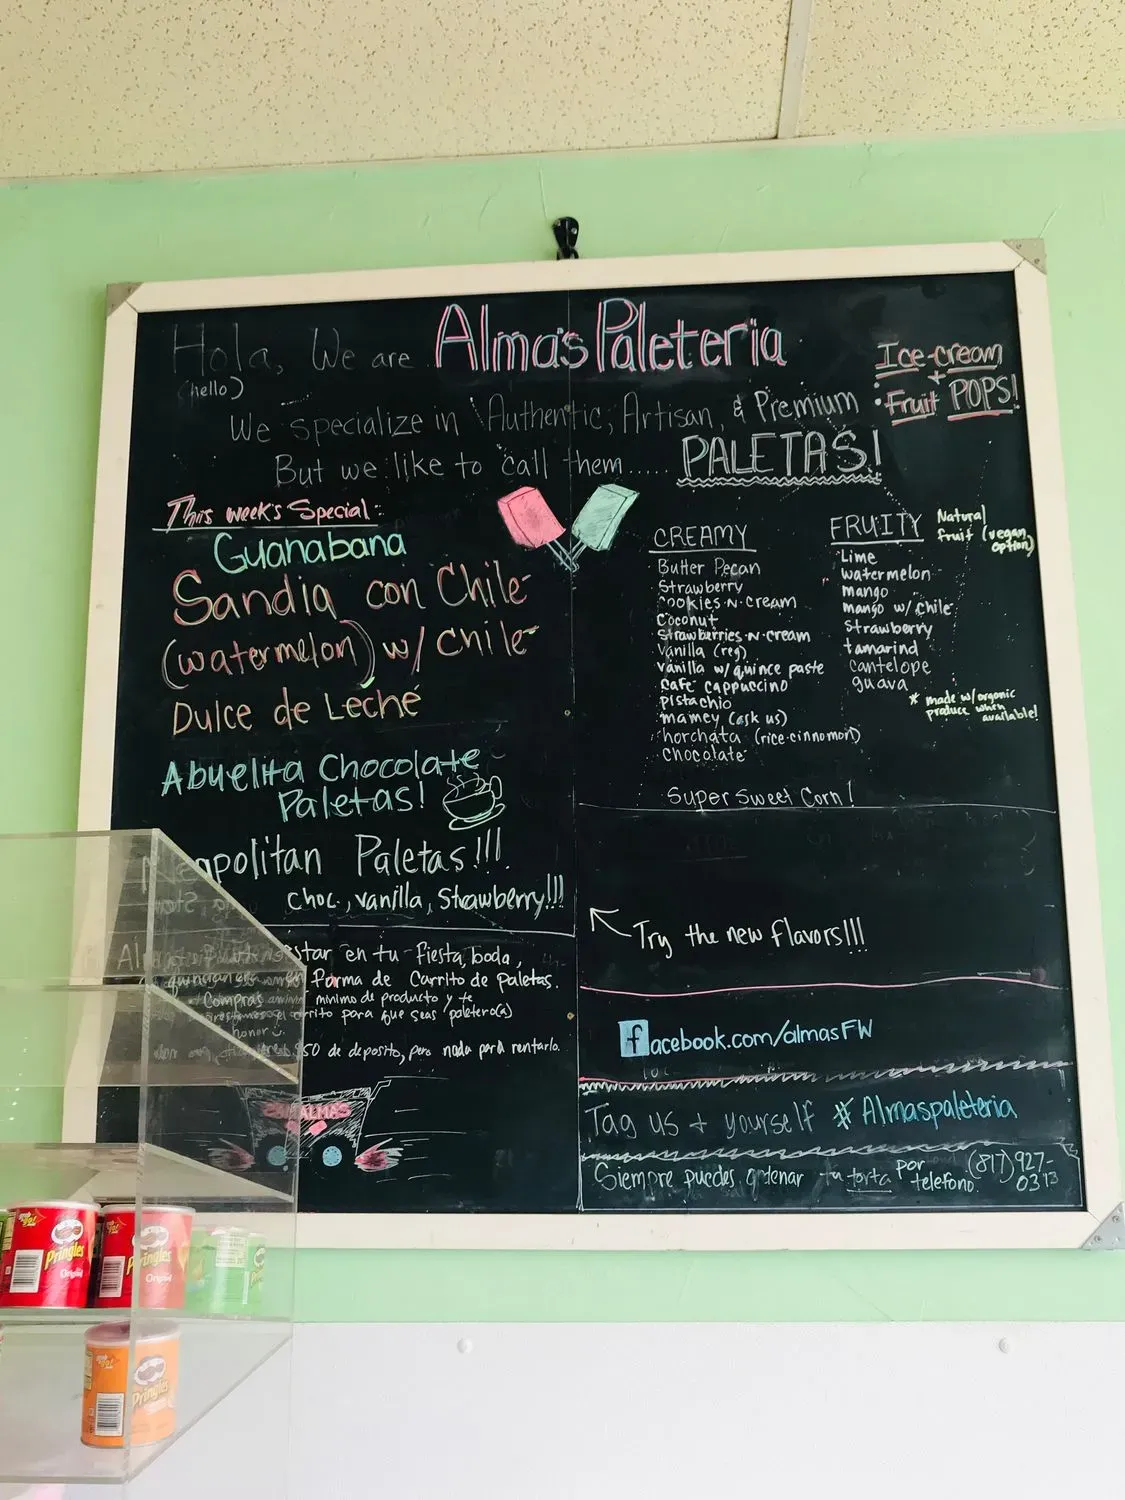 Hola, We are Alma's Paleteria
(hello)
Ice-cream
+
Fruit POPS!
We specialize in Authentic, Artisan, & Premium
But we like to call them...... PALETAS!
This week's Special:
Guanabana
Sandia con Chile
(watermelon) w/ chile
Dulce de Leche
Abuelita Chocolate
Paletas!
Neapolitan Paletas!!!
choc., vanilla, Strawberry!!!
CREAMY
Butter Pecan
Strawberry
Cookies-N-Cream
Coconut
Strawberries-N-cream
Vanilla (reg)
vanilla w/ quince paste
café cappuccino
pistachio
mamey (ask us)
horchata (rice-cinnamon)
chocolate
Super Sweet Corn!
FRUITY
Natural
fruit (vegan
option)
Lime
watermelon
mango
mango w/ chile
Strawberry
tamarind
cantelope
guava
* made w/ organic
produce when
available!
Try the new flavors!!!
en tu fiesta, boda,
forma de Carrito de paletas.
Compras
minimo de producto y te
carrito para que seas paletero(a)
honor
$50 de deposito, pero nada para rentarlo.
ALMAS
facebook.com/almasFW
Tag us + yourself # Almaspaleteria
Siempre puedes ordenar tu torta por telefono. (817) 927-0313
Pringles
Original
Pringles
Original
Pringles
Pringles